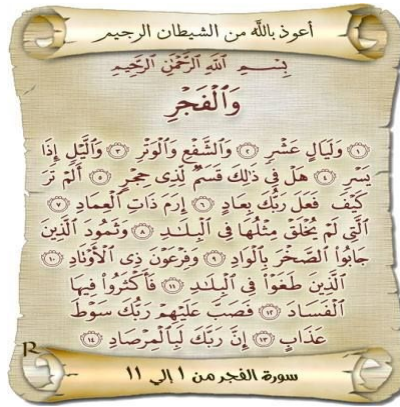 أعوذ بالله من الشيطان الرجيم
بِسْمِ اللَّهِ الرَّحْمَٰنِ الرَّحِيمِ
وَالْفَجْرِ
١ وَلَيَالٍ عَشْرٍ ٢ وَالشَّفْعِ وَالْوَتْرِ ٣ وَاللَّيْلِ إِذَا
يَسْرِ ٤ هَلْ فِي ذَٰلِكَ قَسَمٌ لِّذِي حِجْرٍ ٥ أَلَمْ تَرَ
كَيْفَ فَعَلَ رَبُّكَ بِعَادٍ ٦ إِرَمَ ذَاتِ الْعِمَادِ ٧
الَّتِي لَمْ يُخْلَقْ مِثْلُهَا فِي الْبِلَـٰدِ ٨ وَثَمُودَ الَّذِينَ
جَابُوا الصَّخْرَ بِالْوَادِ ٩ وَفِرْعَوْنَ ذِي الْأَوْتَادِ ١٠
الَّذِينَ طَغَوْا فِي الْبِلَـٰدِ ١١ فَأَكْثَرُوا فِيهَا
الْفَسَادَ ١٢ فَصَبَّ عَلَيْهِمْ رَبُّكَ سَوْطَ
عَذَابٍ ١٣ إِنَّ رَبَّكَ لَبِالْمِرْصَادِ ١٤
سورة الفجر من ١ إلي ١١